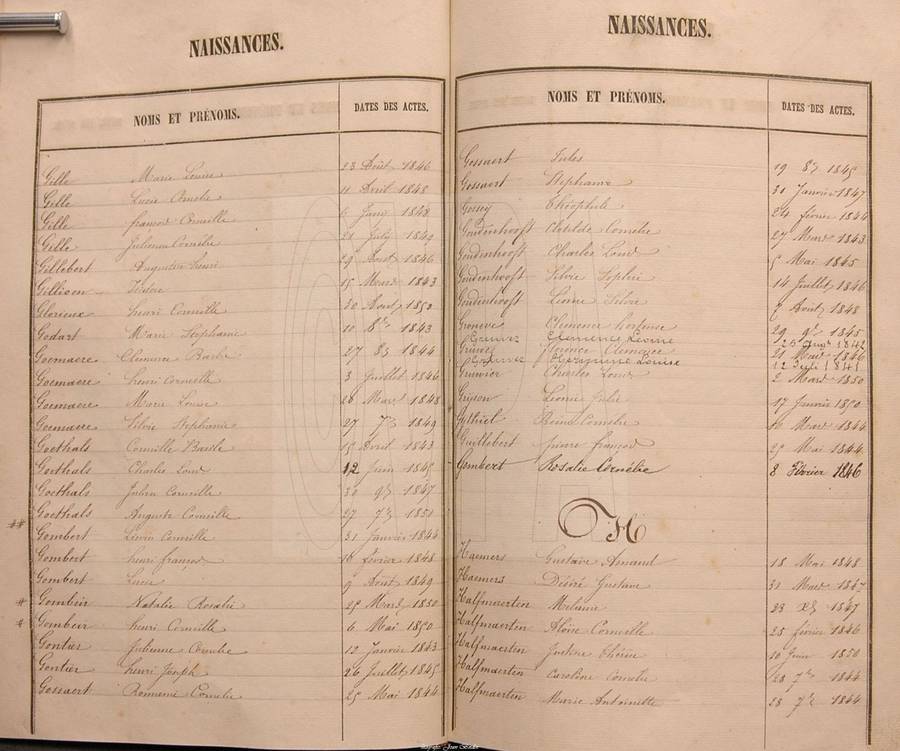 NAISSANCES.
NOMS ET PRÉNOMS. DATES DES ACTES.
Gille Marie Louise 23 Août 1846
Gille Lucie Cornelie 11 Avril 1848
Gille françois Corneille 6 1848
Gille Julienne Cornélie 21 1849
Gillebert Augustin henri 29 Août 1846
Gillison Isidore 15 Mars 1843
Glorieux henri Corneille 30 Août 1850
Godart Marie Stephanie 10 8bre 1843
Goemaere Clemence Barbe 27 8bre 1844
Goemaere henri Corneille 3 Juillet 1846
Goemaere Marie Louise 26 Mars 1848
Goemaere Silvie Stephanie 27 7bre 1849
Goethals Corneille Basile 15 Avril 1843
Goethals Charles Louis 12 Juin 1845
Goethals Corneille 30 9bre 1847
Goethals Auguste Corneille 27 7bre 1851
Gombert Livin Corneille 31 Janvier 1844
Gombert henri françois 16 février 1848
Gombert Lucie 9 Août 1849
Gombeir Natalie Rosalie 25 Mars 1850
Gombeir henri Corneille 6 Mai 1850
Gontier Julienne Cornelie 12 Janvier 1843
Gontier henri Joseph 26 Juillet 1845
Gossaert Romanie Cornelie 25 Mai 1844
NAISSANCES.
NOMS ET PRÉNOMS. DATES DES ACTES.
Gossaert Jules 19 8bre 1845
Gossaert Stephanie 31 Janvier 1847
Théophile 24 février 1844
Goudenhooft Clotilde Cornelie 27 Mars 1843
Goudenhooft Charles Louis 5 Mai 1845
Goudenhooft Silvie Sophie 14 Juillet 1846
Goudenhooft Leonie Silvie 7 Août 1848
Clemence hortense 29 9bre 1845
Clemence 1842
Florence Clemence 21 Mars 1846
Louise 12 Juli 1841
Grunier Charles Louis 2 Mars 1850
Gryson Leonie Julie 17 Janvier 1850
Cornelie 16 Mars 1844
Guillebert pierre françois 25 Mai 1844
Gombert Rosalie Cornélie 8 Février 1846
H
Haemers Gustave Amand 18 Mai 1848
Haemers Désiré Gustave 31 Mars 1847
Halfmaerten Melanie 23 1847
Halfmaerten Aloïse Corneille 25 février 1846
Halfmaerten Justine Thérèse 10 Juin 1850
Halfmaerten Caroline Cornelie 28 7bre 1844
Halfmaerten Marie Antoinette 28 7bre 1844